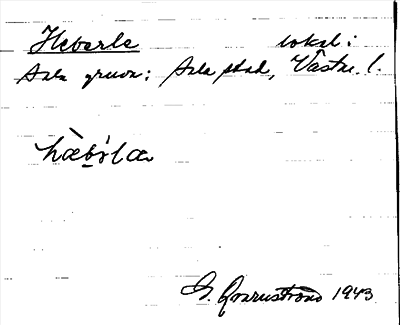 Heberle lokal:
Sala gruva; Sala stad, Västm. l.
hæ̀bə́læ
G. Qvarnström 1943